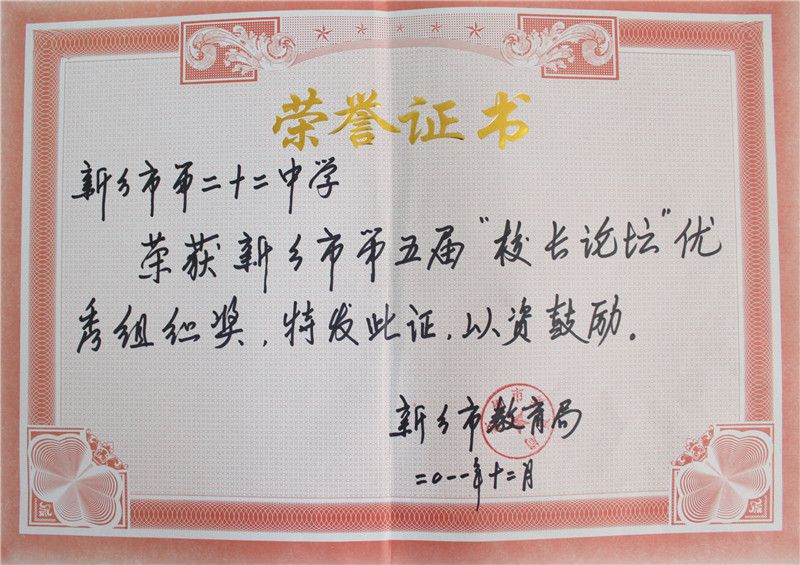 荣誉证书
新乡市第二十二中学
荣获新乡市第五届“校长论坛”优
秀组织奖，特发此证，以资鼓励。
新乡市教育局
二〇一一年十二月